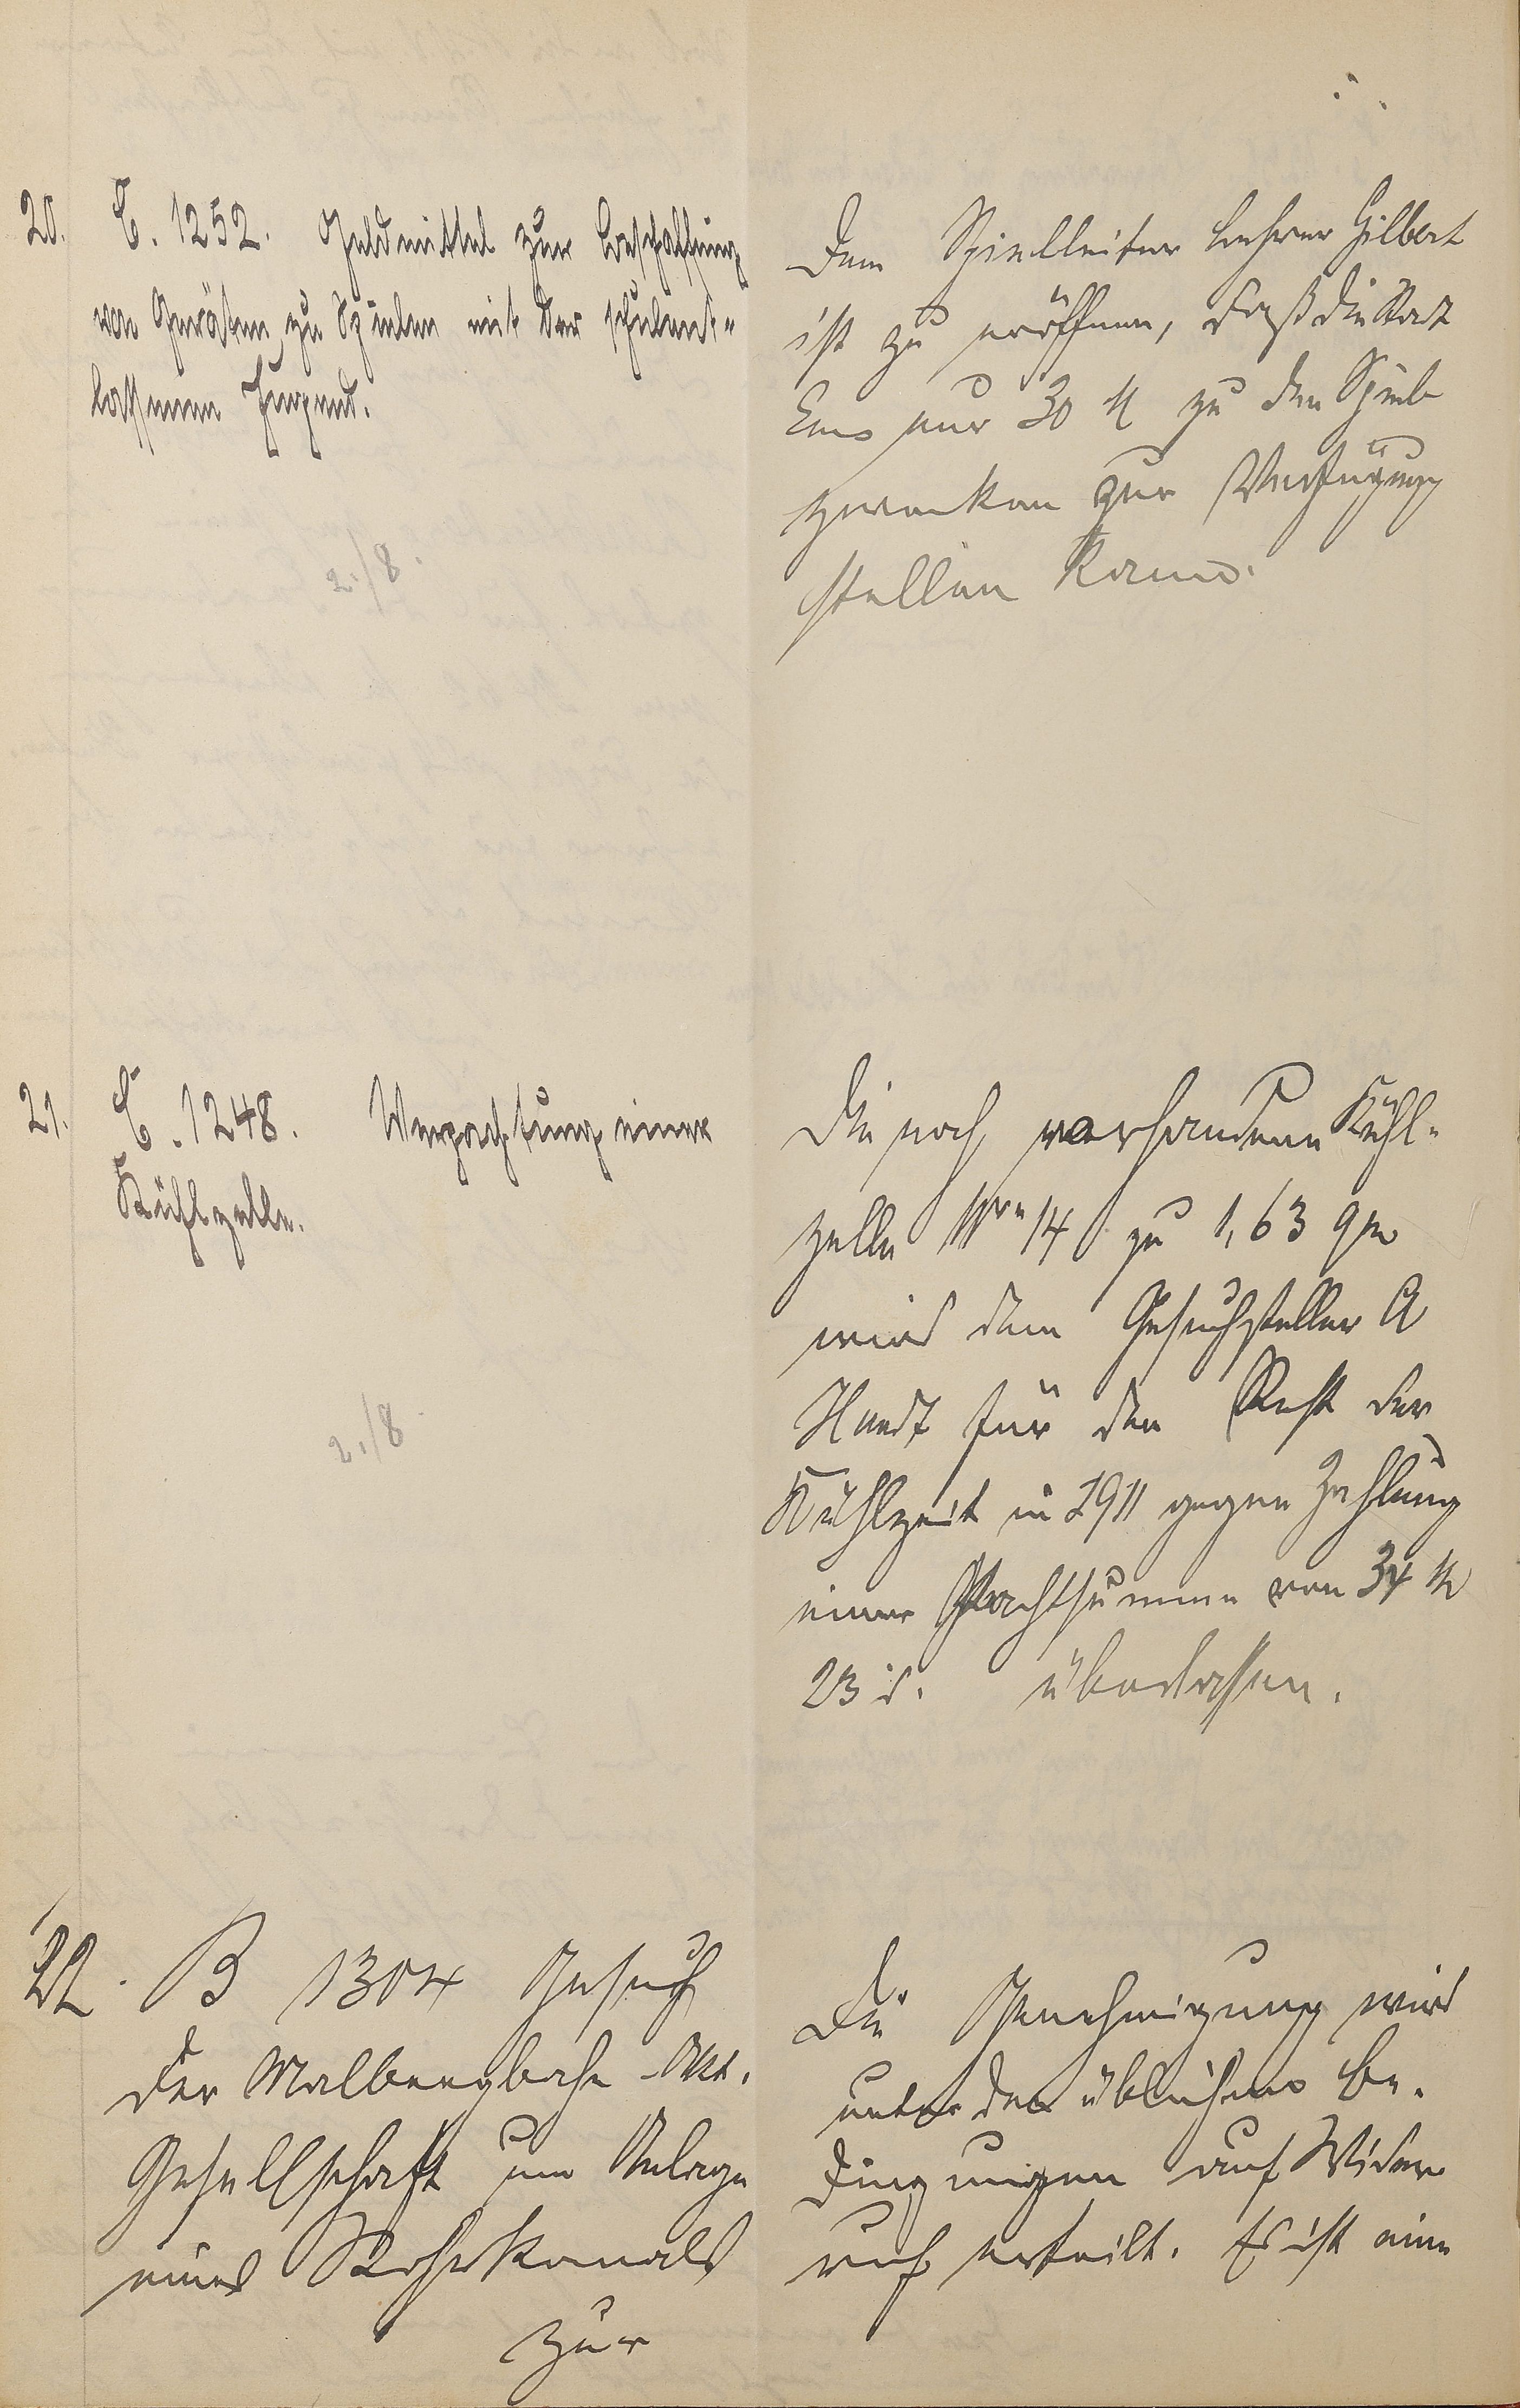 20. C. 1252. Geldmittel zur Beschaffung
von Geräten zu Spielen mit der schulent-
lassenen Jugend.
2./8.
Dem Spielleiter Lehrer Gilbert
ist zu eröffnen, daß die Stadt
Ems nur 30 M zu den Spiel
zwecken zur Verfügung
stellen kann.
21. C. 1248. Verpachtung einer
Kühlzelle.
2./8.
Die noch vorhandene Kühl-
zelle Nr. 14 zu 1,63 qm
wird dem Gesuchsteller A
für den Rest der
Kühlzeit in 1911 gegen Zahlung
einer Pachtsumme von 34 M
23 d. überlassen.
22. B 1304 Gesuch
der Malbergbahn Akt.
Gesellschaft um Anlage
eines Rohrkanals
zur
Die Genehmigung wird
unter den üblichen Be-
dingungen auf Wider
ruf erteilt. Es ist eine